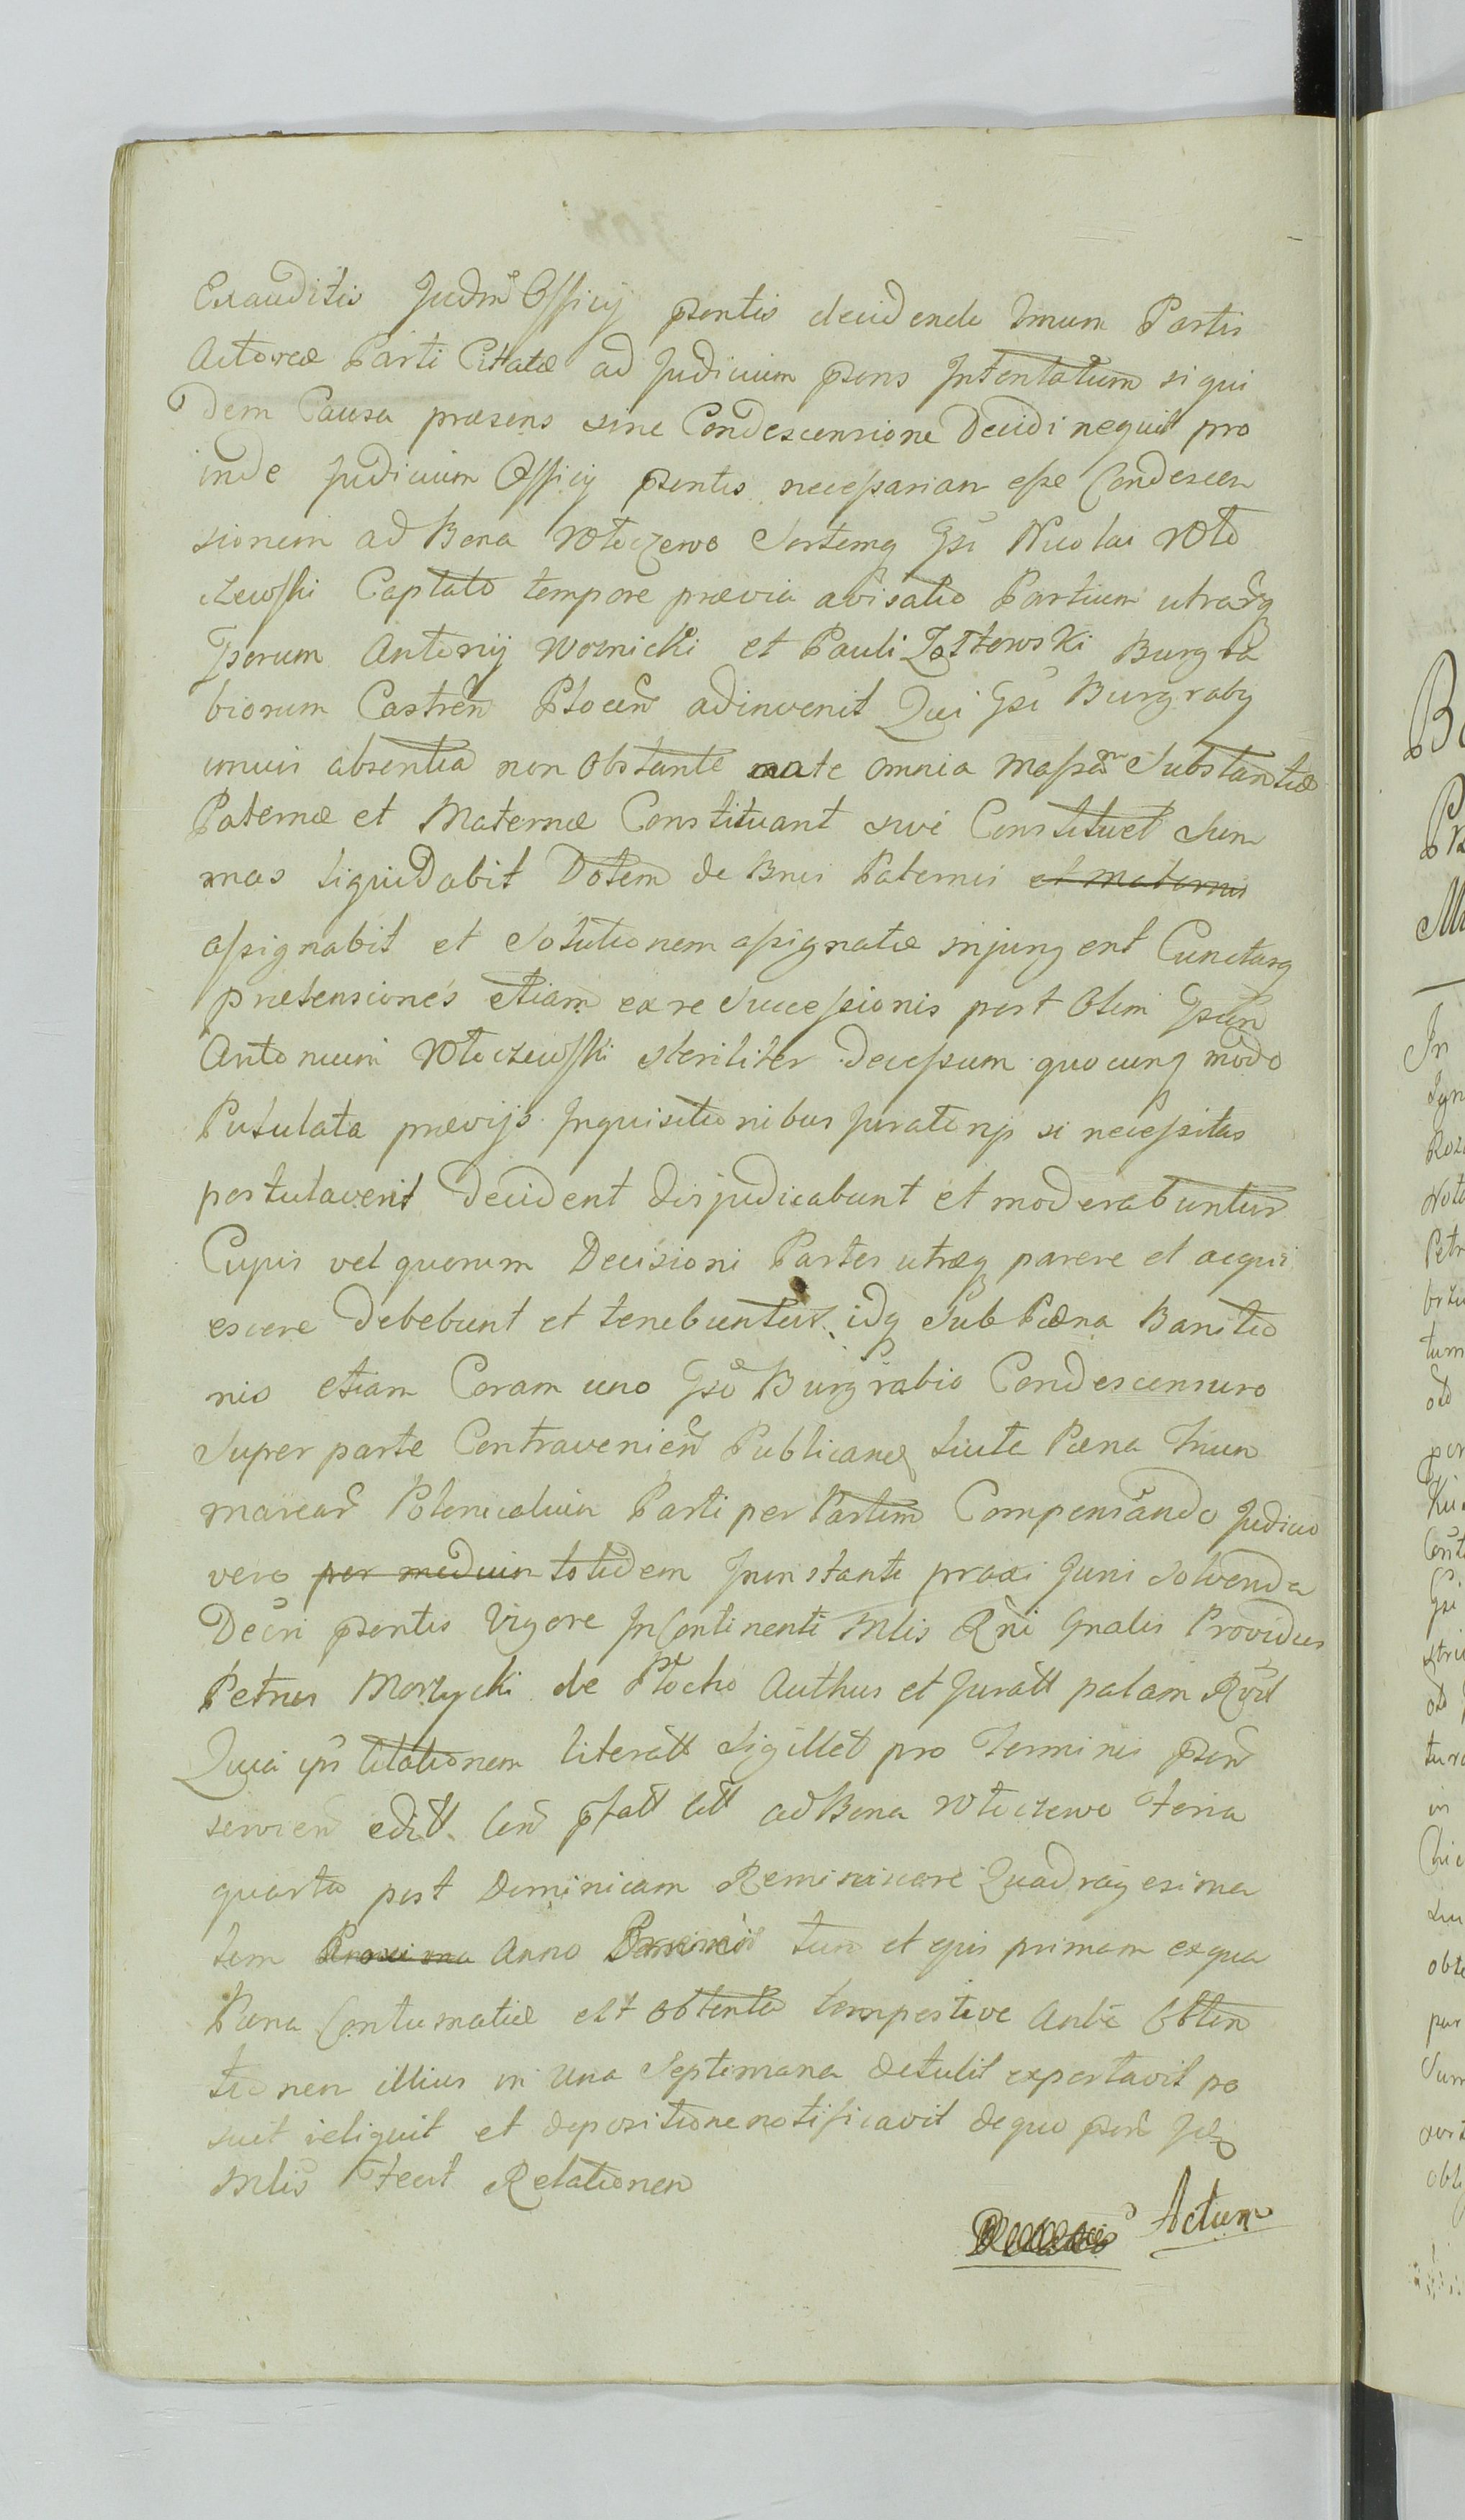 Exauditis Judm Officy pñtis decidendo Tmum Partis
Actoreæ Parti Citatæ ad Judicium pñens Jntentatum si qui
dem Causa præsens sine Condescensione Decidi nequit pro
inde Judicium Officy pñtis necessarian esse Condescen
sionem ad Bona Włoczewo Sortemq Gsi Nicolai Wło
czewski Captato tempore prævia avisatio Partium utrarq
Gsorum Antonij Woznicki et Pauli Zołtowski Burgra
biorum Castren̄ Plocen̄ adinvenit Qui Gsi Burgraby
unius absentia non Obstante ante omnia Massam Substantiæ
Paternæ et Maternæ Constituant sive Constituet Sum
mas liquidabit Dotem de Bnis Paternis et Maternis
assignabit et Solutionem assignatæ injungent Cunctasq
prætensiones etiam ex re Successionis post Olim Gsum
Antonium Włoczewski steriliter decessum quocunq modo
Putulata prævijs Jnquisitionibus Juratorijs si necessitas
postulaverit Decident disjudicabunt et moderabuntur
Cujus vel quorum Decisioni Partes utræq parere et acqui
escere Debebunt et tenebuntur idq Sub Pæna Banitio
nis etiam Coram uno Gso Burgrabio Condescensuro
Super parte Contravenien̄ Publicand Luita Pæna Trium
marcar̄ Polonicalium Parti per Partem Compensando Judicio
vero per medium totidem Juxin stanti praxi Juni Solvenda
Decri pñtis Vigore Jn Continenti Mlis Rñi Gnalis Providus
Petrus Morzycki de Płocko Authus et Juratt palam Rõvit
Quia ips Citationem literatt Sigillet pro Terminis pñen
servien̄ editt. Cen̄ pfatt Citt ad Bona Włoczewo Feria
quarta post Dominicam Reminiscere Quadragesima
lem Proxima Anno tum et ejus primam ex qua
Pæna Contumatiæ est Obtenta tempestive Ante Obten
tionem illius in Una Septimana detulit exportavit po
suit reliquit et depositione notificavit de quo pñen
Mlis Fecit Relationem
Actum